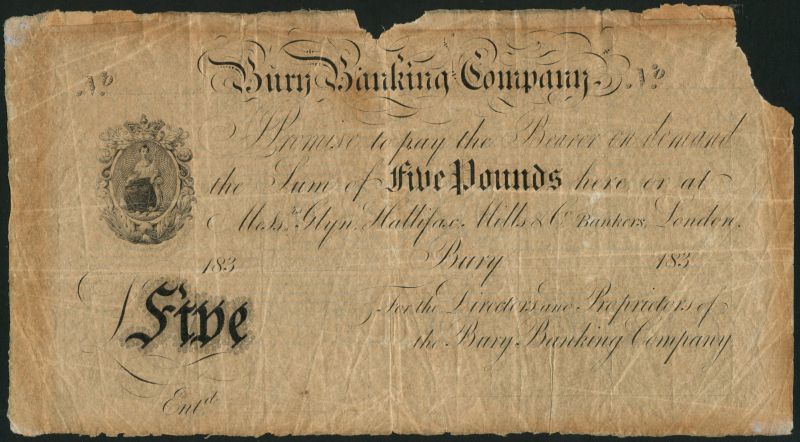 Bury Banking Company.
No No
I Promise to pay the Bearer on demand
the Sum of Five Pounds here or at
Messrs Glyn, Hallifax, Mills & Co Bankers, London.
183 Bury 183
Five
For the Directors and Proprietors of
the Bury Banking Company
Entd